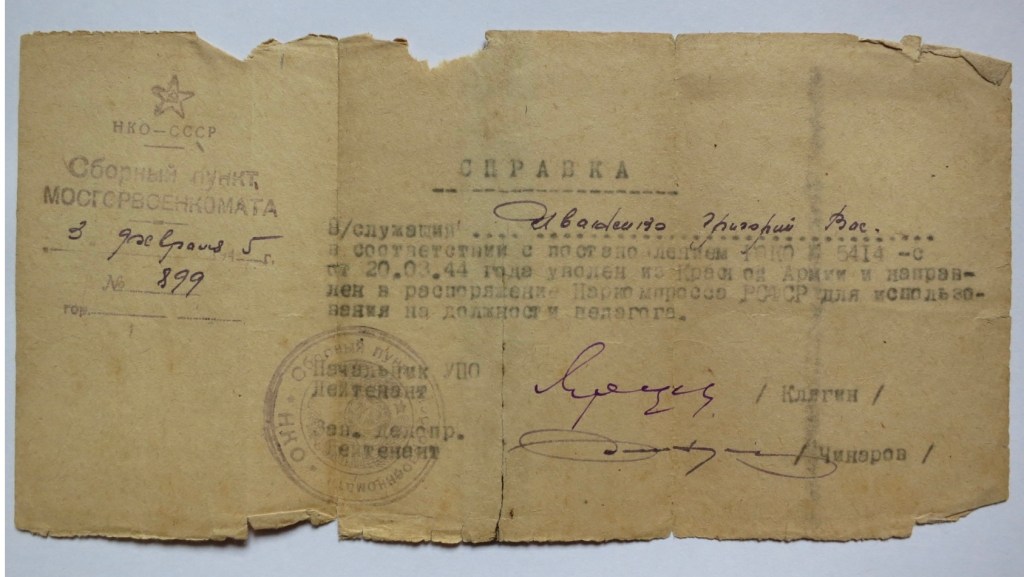 НКО—СССР
Сборный пункт
МОСГОРВОЕНКОМАТА
3 февраля 45 г.
№ 899
гор.
СПРАВКА
В/служащий Иваненко Григорий Вас.
в соответствии с постановлением ГОКО № 5414-с
от 20.03.44 года уволен из Красной Армии и направ-
лен в распоряжение Наркомпросса РСФСР для использо-
вания на должности педагога.
Начальник УПО
Лейтенант / Клягин /
Зав. делопр.
Лейтенант / Чинаров /
НКО * Сборный пункт